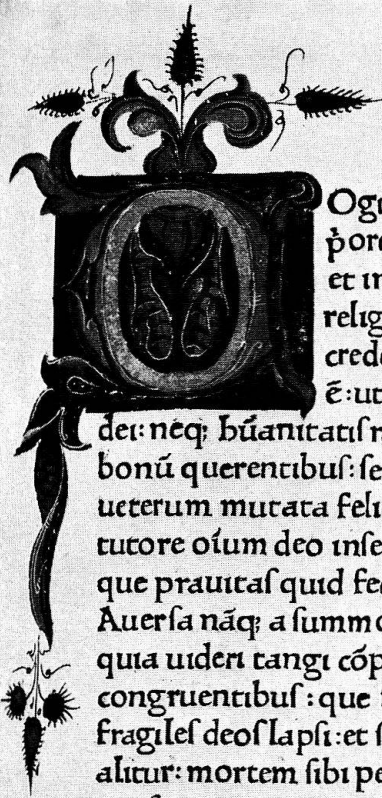 O
Og
ṗor
et in
relig
cred
ē:ut
dei: neq; hūanıtatıſ
bonū querentıbuſ: ſe
ueterum mutata felı
tutore oı̄um deo ınſe
que prauıtaſ quıd fe
Auerſa nāq; a ſummo
quıa uıderı tangı cōp
congruentıbuſ : que
fragıleſ deoſ lapſı: et
alıtur: mortem ſıbı pe